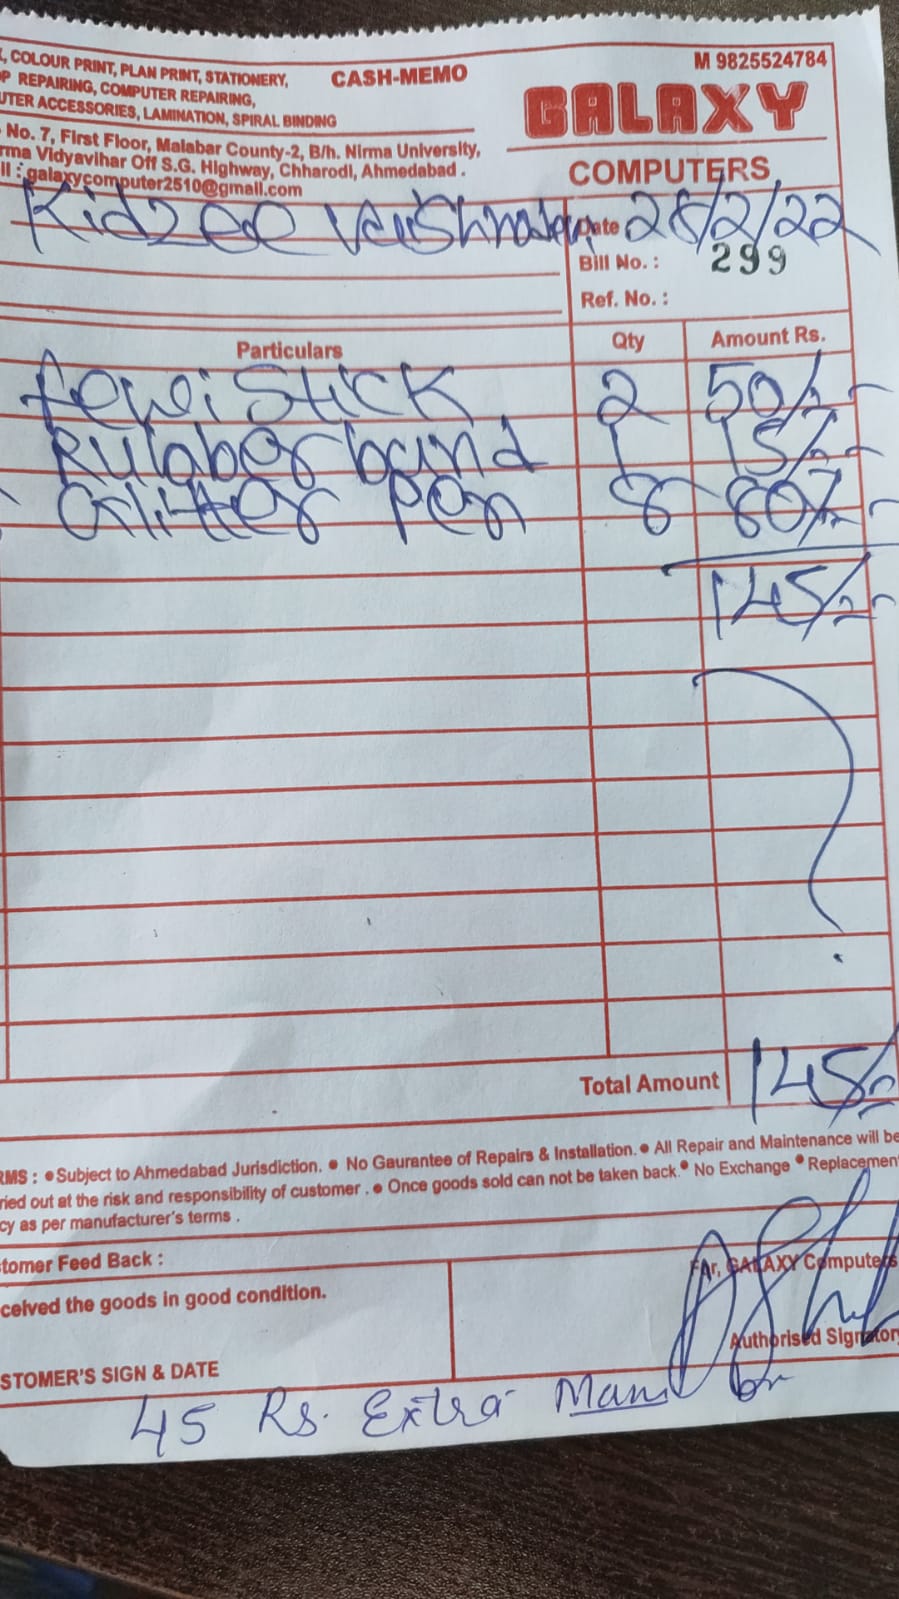 , COLOUR PRINT, PLAN PRINT, STATIONERY, CASH-MEMO M 9825524784
OP REPAIRING, COMPUTER REPAIRING,
UTER ACCESSORIES, LAMINATION, SPIRAL BINDING
GALAXY
No. 7, First Floor, Malabar County-2, B/h. Nirma University,
rma Vidyavihar Off S.G. Highway, Chharodi, Ahmedabad .
il : galaxycomputer2510@gmail.com
COMPUTERS
Kidzee Date 28/2/22
Bill No. : 299
Ref. No. :
Particulars Qty Amount Rs.
fewi Stick 2 50/-
Rulaber band 1 15/-
Glitter Pen 8 80/-
145/-
Total Amount 145/-
RMS : • Subject to Ahmedabad Jurisdiction. • No Gaurantee of Repairs & Installation. • All Repair and Maintenance will be
ried out at the risk and responsibility of customer . • Once goods sold can not be taken back. • No Exchange • Replacemen
cy as per manufacturer's terms .
tomer Feed Back :
For, GALAXY Computers
ceived the goods in good condition.
Authorised Signator
STOMER'S SIGN & DATE
45 Rs. Extra